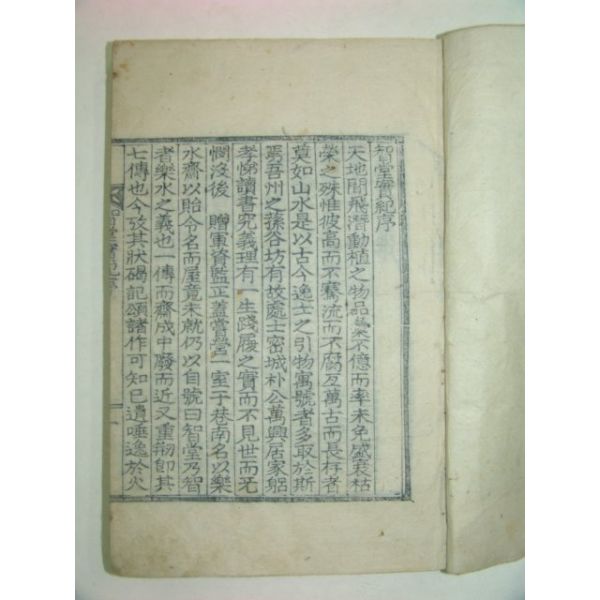 智堂實紀序
天地間飛潛動植之物品彙不億而率未免盛衰枯
榮之殊惟彼高而不騫流而不腐亙萬古而長存者
莫如山水是以古今逸士之引物寓號者多取於斯
焉吾州之蓀谷坊有故處士密城朴公萬興居家躬
孝悌讀書究義理有一生踐履之實而不見世而无
憫沒後 贈軍資監正蓋嘗營一室于巷南名以樂
水齋以貽令名而屋竟未就仍以自號曰智堂乃智
者樂水之義也一傳而齋成中廢而近又重刱卽其
七傳也今攷其狀碣記頌諸作可知已遺唾逸於火